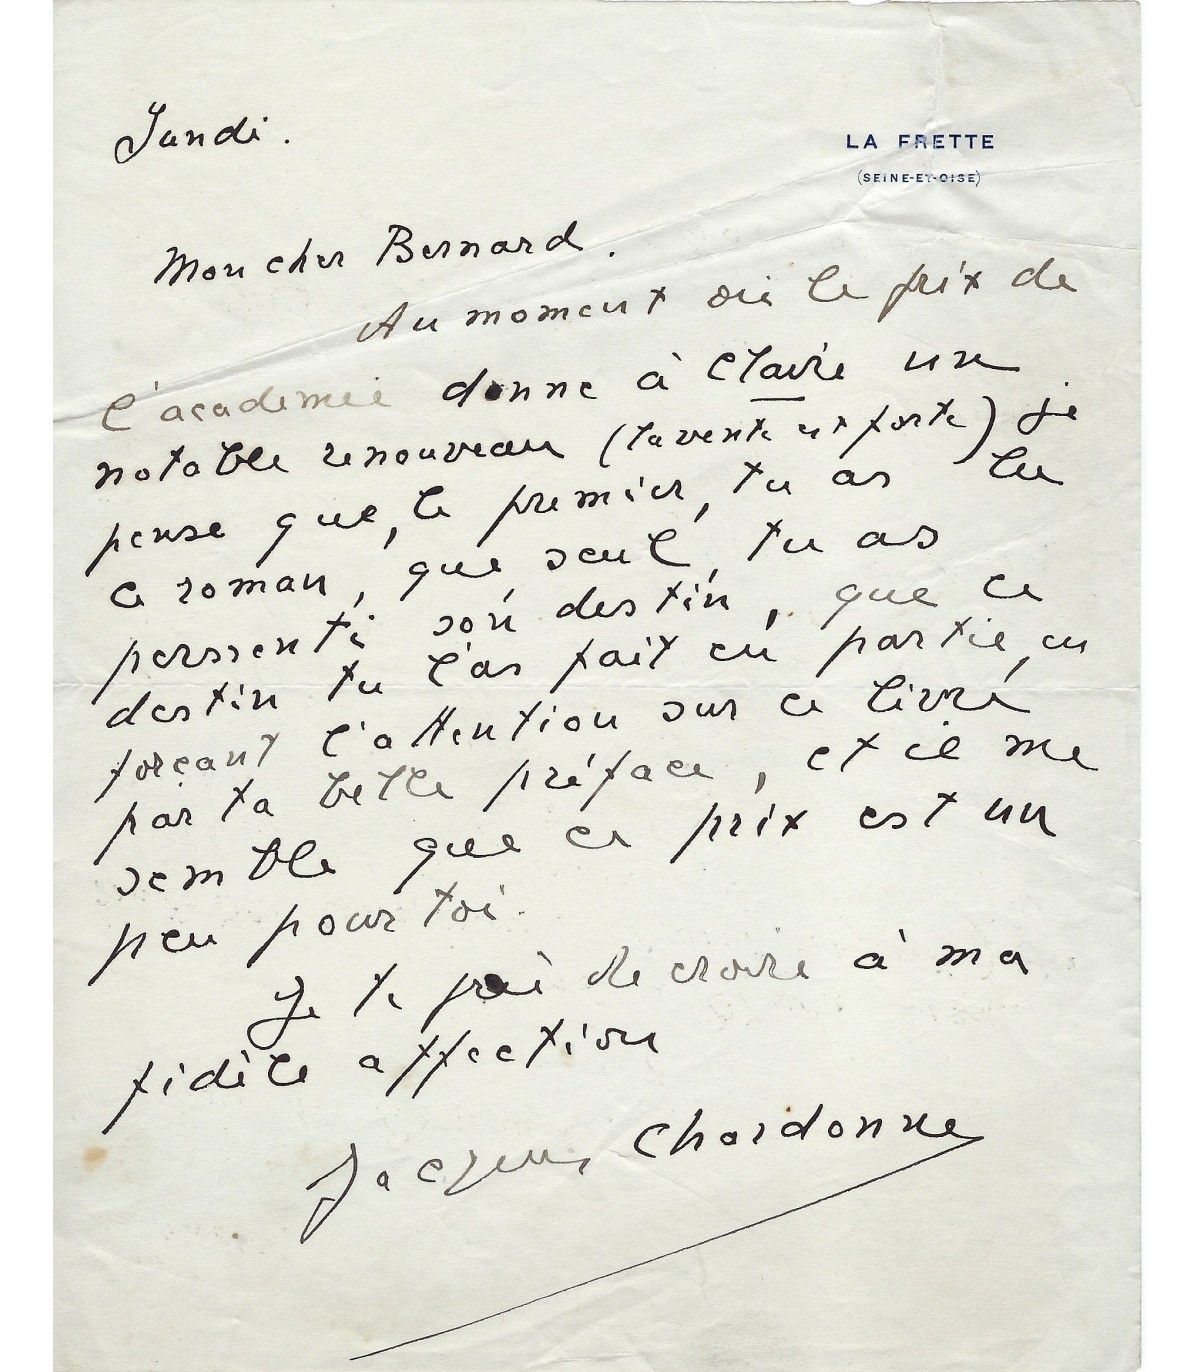 Jeudi.
LA FRETTE
(SEINE-ET-OISE)
Mon cher Bernard.
Au moment où le prix de
l'académie donne à Claire un
notable renouveau (la vente est forte) je
pense que, le premier, tu as lu
ce roman, que seul, tu as
perssenti son destin, que ce
destin tu l'as fait en partie, en
forçant l'attention sur ce livre
par ta belle préface, et il me
semble que ce prix est un
peu pour toi.
Je te prie de croire à ma
fidèle affection
Jacques Chardonne